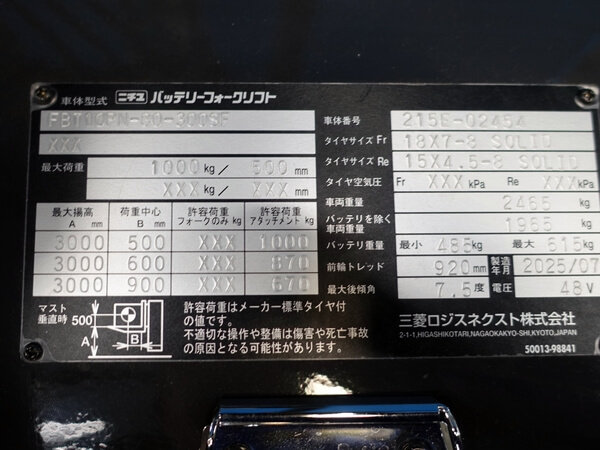 車体型式 ニチユ バッテリーフォークリフト
FBT10PN-80-300SF
XXX
最大荷重 1000 kg / 500 mm
XXX kg / XXX mm
最大揚高 A mm 荷重中心 B mm 許容荷重 フォークのみ kg 許容荷重 アタッチメント kg
3000 500 XXX 1000
3000 600 XXX 870
3000 900 XXX 670
マスト垂直時 500 A B
許容荷重はメーカー標準タイヤ付
の値です。
不適切な操作や整備は傷害や死亡事故
の原因となる可能性があります。
車体番号 215E-02454
タイヤサイズ Fr 18X7-8 SOLID
タイヤサイズ Re 15X4.5-8 SOLID
タイヤ空気圧 Fr XXX kPa Re XXX kPa
車両重量 2465 kg
バッテリを除く車両重量 1965 kg
バッテリ重量 最小 485 kg 最大 615 kg
前輪トレッド 920 mm 製造年月 2025/07
最大後傾角 7.5 度 電圧 48 V
三菱ロジスネクスト株式会社
2-1-1,HIGASHIKOTARI,NAGAOKAKYO-SHI,KYOTO,JAPAN
50013-98841